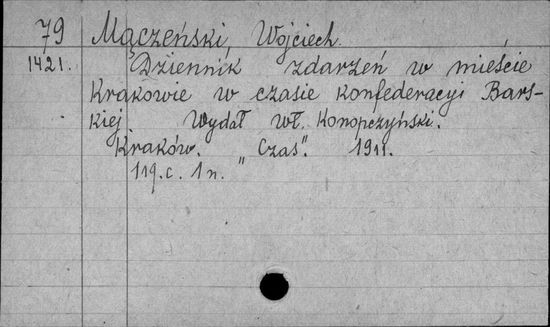 79 Mączeński, Wojciech.
1421. Dziennik zdarzeń w mieście
Krakowie w czasie konfederacyi Bars-
kiej Wydał Wł. Konopczyński.
Kraków. "Czas". 1911.
119. c. 1 n.